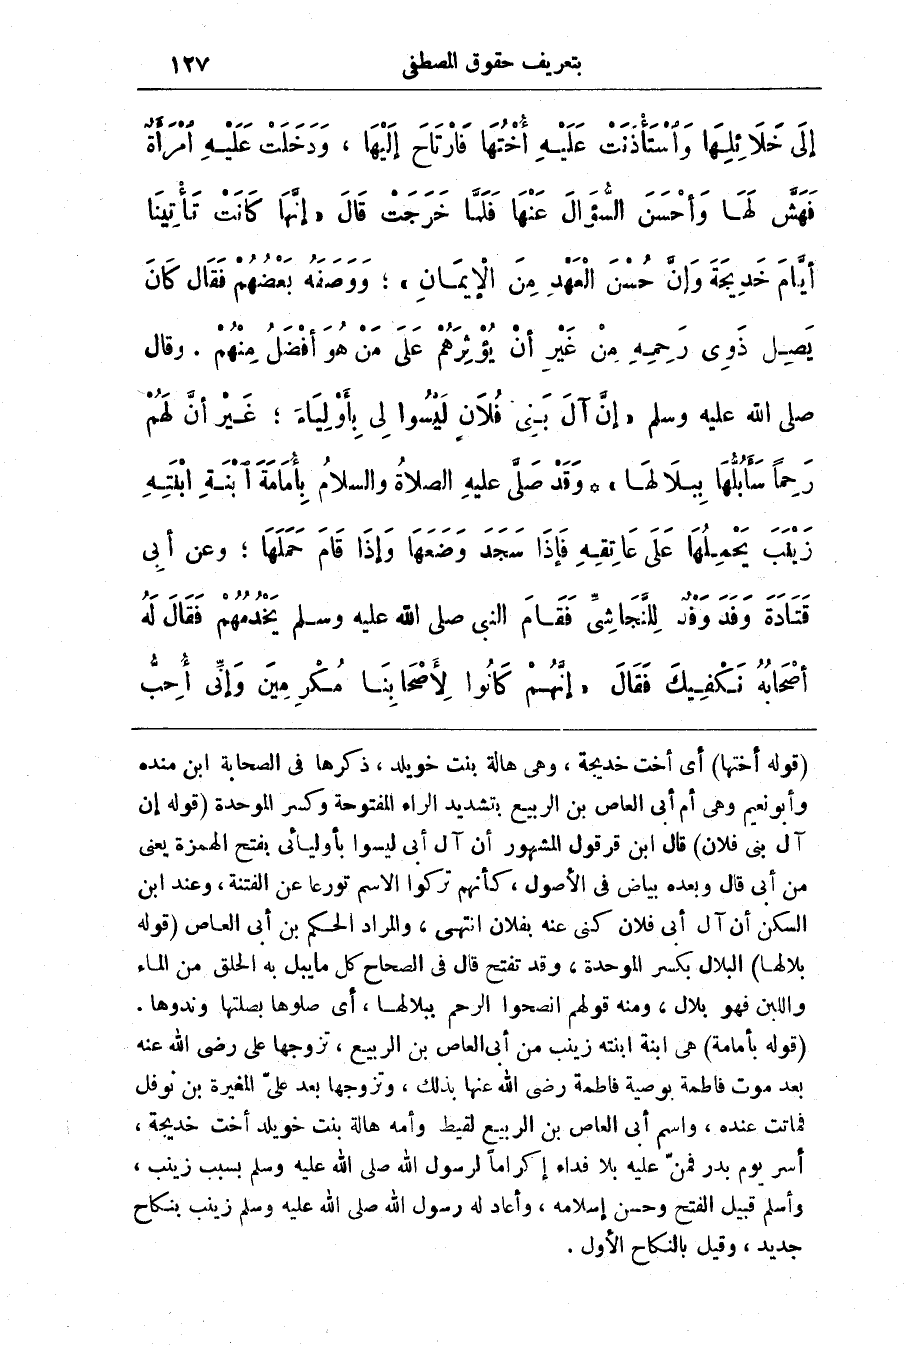 بتعريف حقوق المصطفى ١٢٧
إِلَى خَلَائِلِهَا وَٱسْتَأْذَنَتْ عَلَيْهِ أُخْتُهَا فَارْتَاحَ إِلَيْهَا ، وَدَخَلَتْ عَلَيْهِ ٱمْرَأَةٌ
فَهَشَّ لَهَا وَأَحْسَنَ السُّؤَالَ عَنْهَا فَلَمَّا خَرَجَتْ قَالَ « إِنَّهَا كَانَتْ تَأْتِينَا
أَيَّامَ خَدِيجَةَ وَإِنَّ حُسْنَ الْعَهْدِ مِنَ الْإِيمَانِ » ؛ وَوَصَفَهُ بَعْضُهُمْ فَقَالَ كَانَ
يَصِلُ ذَوِى رَحِمِهِ مِنْ غَيْرِ أَنْ يُؤْثِرَهُمْ عَلَى مَنْ هُوَ أَفْضَلُ مِنْهُمْ . وقال
صلى الله عليه وسلم « إِنَّ آلَ بَنِى فُلَانٍ لَيْسُوا لِى بِأَوْلِيَاءَ ؛ غَيْرَ أَنَّ لَهُمْ
رَحِماً سَأَبُلُّهَا بِبِلَالِهَا » * وَقَدْ صَلَّى عليهِ الصلاةُ والسلامُ بِأُمَامَةَ ٱبْنَةِ ابْنَتِهِ
زَيْنَبَ يَحْمِلُهَا عَلَى عَاتِقِهِ فَإِذَا سَجَدَ وَضَعَهَا وَإِذَا قَامَ حَمَلَهَا ؛ وعن أَبِى
قَتَادَةَ وَفَدَ وَفْدٌ لِلنَّجَاشِىِّ فَقَامَ النبى صلى الله عليه وسلم يَخْدُمُهُمْ فَقَالَ لَهُ
أَصْحَابُهُ نَكْفِيكَ فَقَالَ « إِنَّهُمْ كَانُوا لِأَصْحَابِنَا مُكْرِمِينَ وَإِنِّى أُحِبُّ
(قوله أختها) أى أخت خديجة ، وهى هالة بنت خويلد ، ذكرها فى الصحابة ابن منده
وأبو نعيم وهى أم أبى العاص بن الربيع بتشديد الراء المفتوحة وكسر الموحدة (قوله إن
آل بنى فلان) قال ابن قرقول المشهور أن آل أبى ليسوا بأوليائى بفتح الهمزة يعنى
من أبى قال وبعده بياض فى الأصول ، كأنهم تركوا الاسم تورعا عن الفتنة ، وعند ابن
السكن أن آل أبى فلان كنى عنه بفلان انتهى ، والمراد الحكم بن أبى العاص (قوله
بلالها) البلال بكسر الموحدة ، وقد تفتح قال فى الصحاح كل مايبل به الحلق من الماء
واللبن فهو بلال ، ومنه قولهم انضحوا الرحم ببلالها ، أى صلوها بصلتها وندوها .
(قوله بأمامة) هى ابنة ابنته زينب من أبى العاص بن الربيع ، تزوجها على رضى الله عنه
بعد موت فاطمة بوصية فاطمة رضى الله عنها بذلك ، وتزوجها بعد علىّ المغيرة بن نوفل
فماتت عنده ، واسم أبى العاص بن الربيع لقيط وأمه هالة بنت خويلد أخت خديجة ،
أسر يوم بدر فمنّ عليه بلا فداء إكراماً لرسول الله صلى الله عليه وسلم بسبب زينب ،
وأسلم قبيل الفتح وحسن إسلامه ، وأعاد له رسول الله صلى الله عليه وسلم زينب بنكاح
جديد ، وقيل بالنكاح الأول .